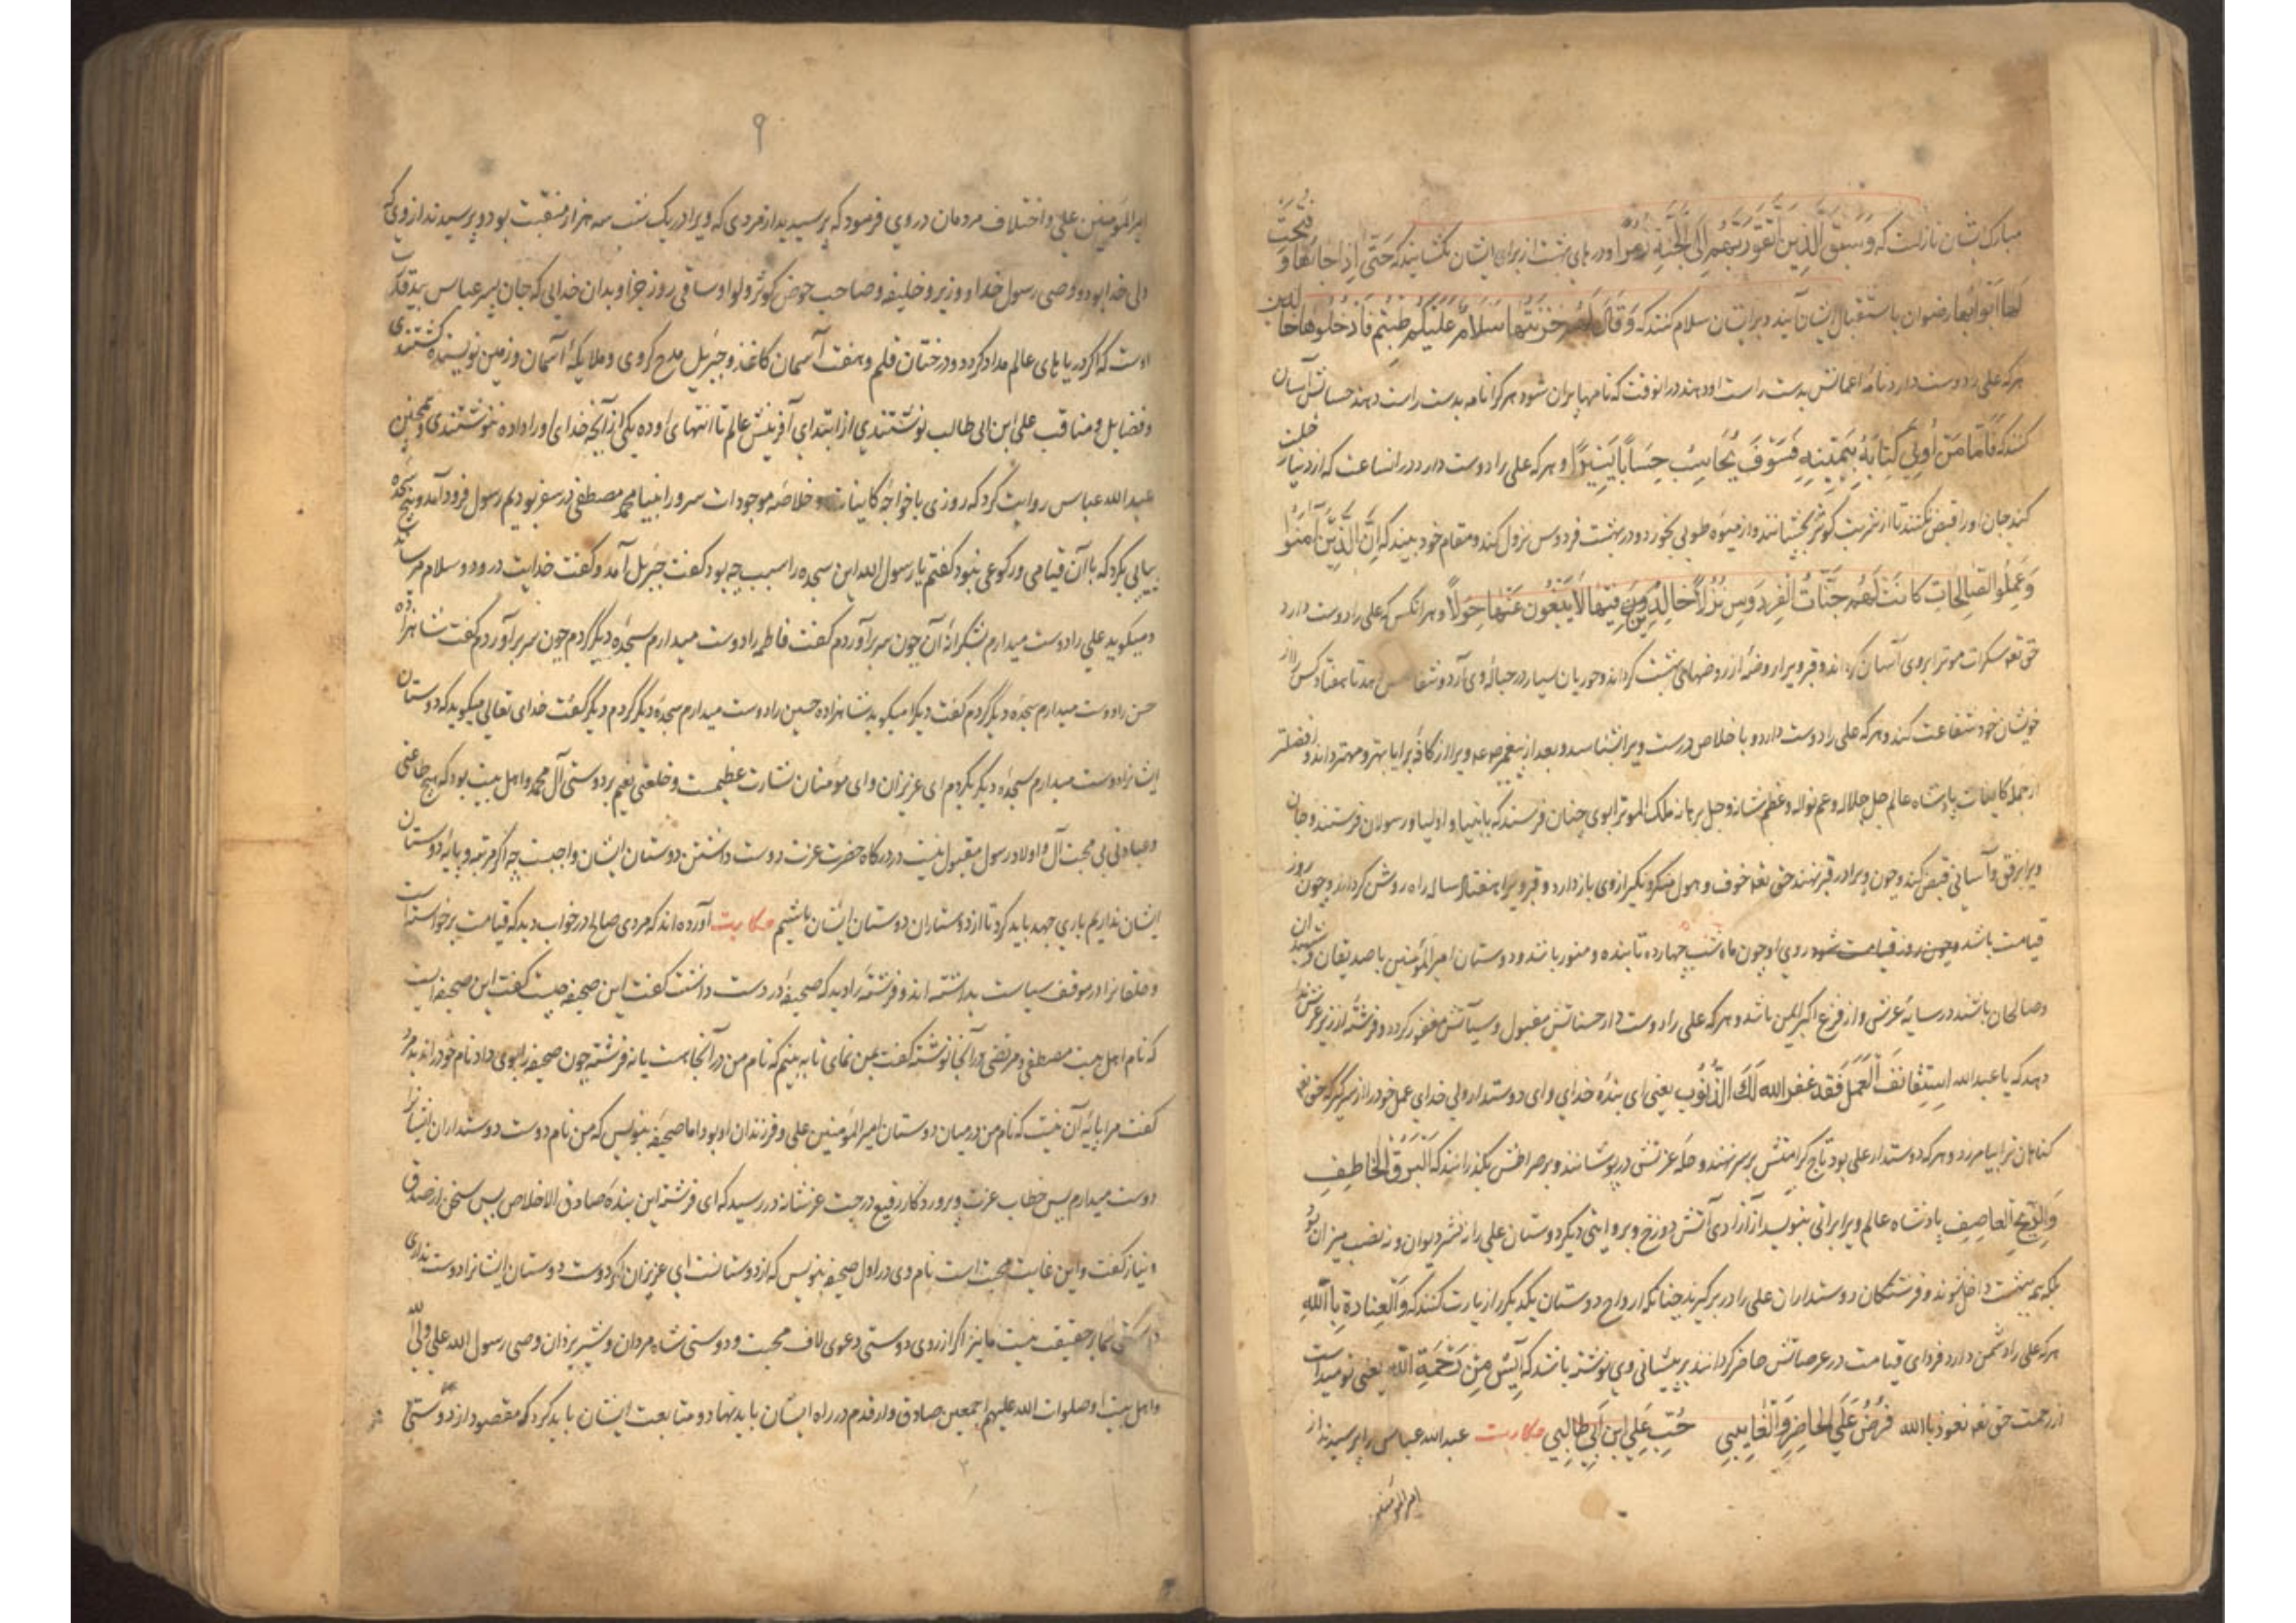 مبارک ایشان نازلست که وَسِیقَ الَّذِینَ اتَّقَوْا رَبَّهُمْ اِلَی الْجَنَّةِ زُمَرًا و درهای بهشت از برای ایشان بکشایند که حَتّی اِذا جاؤها وَ فُتِحَتْ
لَها اَبْوابُها رضوان باستقبال ایشان آیند و برایشان سلام کنند که وَ قالَ لَهُمْ خَزَنَتُها سَلامٌ عَلَیْکُمْ طِبْتُمْ فَادْخُلُوها خالدین
هرکه علی را دوست دارد نامهٔ اعمالش بدست راست او دهند در آنوقت که نامها پران شود هرکرا نامه بدست راست دهند حسابش آسان
کنند که فَاَمّا مَنْ اُوتِیَ کِتابَهُ بِیَمینِهِ فَسَوْفَ یُحاسَبُ حِسابًا یَسیرًا و هرکه علی را دوست دارد در انساعت که از دنیا رحلت
کند جان او را قبض نکنند تا از شربت کوثر بچشانند و از میوهٔ طوبی بخورد و در بهشت فردوس نزول کند و مقام خود بیند که اِنَّ الَّذینَ آمَنُوا
وَعَمِلُوا الصّالِحاتِ کانَتْ لَهُمْ جَنّاتُ الْفِرْدَوْسِ نُزُلاً خالِدینَ فیها لا یَبْغُونَ عَنْها حِوَلاً و هر انکس که علی را دوست دارد
حق تعه سکرات موترا بر وی آسان کرداند و قبر ویرا روضهٔ از روضهای بهشت کرداند و حوریان بسیار در حبالهٔ وی آرد و شفاعس دهد تا هفتاد کس را از
خویشان خود شفاعت کند و هرکه علی را دوست دارد و با خلاص درست ویرا بشناسد و بعد از پیغمبر صعه ویرا از کافهٔ برایا بهتر و مهتر داند و افضلتر
از جمله کاینات پادشاه عالم جل جلاله و عم نواله و عظم شانه و جل برهانه ملک الموترا بوی چنان فرستد که بانبیا و اولیا و رسولان فرستند و جان
ویرا برفق و آسانی قبض کند و چون ویرا در قبر نهند حق تعه خوف و هول منکر و نکیر از وی باز دارد و قبر ویرا هفتاد ساله راه روشن کرداند و چون روز
قیامت باشد و چون روز قیامت شود روی او چون ماه شب چهارده تابنده و منور باشد و دوستان امیرالمؤمنین با صدیقان و شهیدان
و صالحان باشند در سایهٔ عرش و از فزع اکبر ایمن باشد و هرکه علی را دوست دارد حسناتش مقبول و سیآتش مغفور کردد و فرشتهٔ از زیر عرش ندا
دهد که یا عبدالله اِسْتَأنِفِ الْعَمَلَ فَقَدْ غفر الله لَكَ الذُّنُوب یعنی ای بندهٔ خدای و ای دوستدار ولی خدای عمل خود را از سر گیر که حق تعه
کناهان ترا بیامرزد و هرکه دوستدار علی بود تاج کرامتش بر سر نهند و حلهٔ عزتش درپوشانند و بر صراطش بکذرانند که اَلْبَرْقِ الْخاطِفِ
وَالرّیحِ الْعاصِفِ پادشاه عالم ویرا براتی بنویسد از آزادی آتش دوزخ و بروایتی دیکر دوستان علی را نه نشر دیوان و نه نصب میزان بود
بلکه همه ببهشت داخل شوند و فرشتکان دوستداران علی را در بر گیرند چنانکه ارواح دوستان یکدیکر را زیارت کنند که وَالْعِیاذةُ بِاللهِ
هرکه علی را دشمن دارد فردای قیامت در عرصاتش حاضر کردانند بر پیشانی وی نوشته باشند که آیِسٌ مِنْ رَحْمَةِ اللهِ یعنی نومید است
از رحمت حق تعه نعوذ باالله فَرْضٌ عَلَی الْحاضِرِ وَالْغایِبی حُبِّ عَلیِ ابْنِ اَبی طالِبی حکایت عبدالله عباس را پرسیدند از
امیرالمؤمنین
۹
امیرالمؤمنین علی و اختلاف مردمان در وی فرمود که پرسیدید از مردی که ویرا در یک شب سه هزار منقبت بود و پرسیدند از وی که
ولی خدا بود و وصی رسول خدا و وزیر و خلیفه و صاحب حوض کوثر و لوا و ساقی روز جزا و بدان خدایی که جان پسر عباس بید قدرت
اوست که اکر دریاهای عالم مداد کردد و درختان قلم و هفت آسمان کاغذ و جبریل مدح کروی و ملایکهٔ آسمان و زمین نویسنده کشتندی
و فضایل و مناقب علی ابن ابی طالب نوشتندی از ابتدای آفرینش عالم تا انتهای او ده یکی از آنچه خدای او را داده ننوشتندی و همچنین
عبدالله عباس روایت کرد که روزی با خواجه کاینات و خلاصه موجودات سرور انبیا محمد مصطفی در سفر بودیم رسول فرود آمد و پنج سجده
پیاپی بکرد که با آن قیامی و رکوعی نبود کفتم یا رسول الله این سجده را سبب چه بود کفت جبریل آمد و کفت خدایت درود و سلام میرساند
و میکوید علی را دوست میدارم بشکرانهٔ آن چون سر برآوردم کفت فاطمه را دوست میدارم سجدهٔ دیکر کردم چون سر برآوردم کفت شاهزاده
حسن را دوست میدارم سجدهٔ دیکر کردم کفت دیکر میکوید شاهزاده حسین را دوست میدارم سجدهٔ دیکر کردم دیکر کفت خدای تعالی میکوید که دوستان
ایشانرا دوست میدارم سجدهٔ دیکر بکردم ای عزیزان و ای مؤمنان بشارت عظیمست و خلعتی نعیم بر دوستی آل محمد و اهل بیت بود که هیچ طاعتی
و عبادتی بی محبت آل و اولاد رسول مقبول نیست در درکاه حضرت عزت دوست داشتن دوستان ایشان واجبست چه اکر مرتبه و پایهٔ دوستان
ایشان نداریم باری جهد باید کرد تا از دوستاران دوستان ایشان باشیم حکایت آورده اند که مردی صالح در خواب دید که قیامت برخواسته است
و خلقانرا در موقف سیاست بداشته اند و فرشتهٔ را دید که صحیفهٔ در دست داشت کفت این صحیفه چیست کفت این صحیفه ایست
که نام اهل بیت مصطفی و مرتضی در آنجا نوشته کفت بمن نمای تا به بینم که نام من در آنجا هست یا نه فرشته چون صحیفه را بوی داد نام خود را ندید مرد
کفت مرا پایهٔ آن نیست که نام من در میان دوستان امیرالمؤمنین علی و فرزندان او بود اما صحیفه بنویس که من نام دوست دوستداران ایشانرا
دوست میدارم پس خطاب عزت و پروردکار رفیع درجت عز شانه در رسید که ای فرشته این بندهٔ صادق الاخلاص پس سخن از صدق
و نیاز کفت و این غایت محبت است نام وی در اول صحیفه بنویس که از دوستانست ای عزیزان اکر دوست دوستان ایشانرا دوست نداری
دوستی شما بر حقیقت نیست ما نیز اکر از روی دوستی دعوی و لاف محبت و دوستی شاه مردان و شیر یزدان وصی رسول الله علی ولی الله
و اهل بیت او صلوات الله علیهم اجمعین صادق وار قدم در راه ایشان باید نهاد و متابعت ایشان باید کرد که مقصود از دوستی